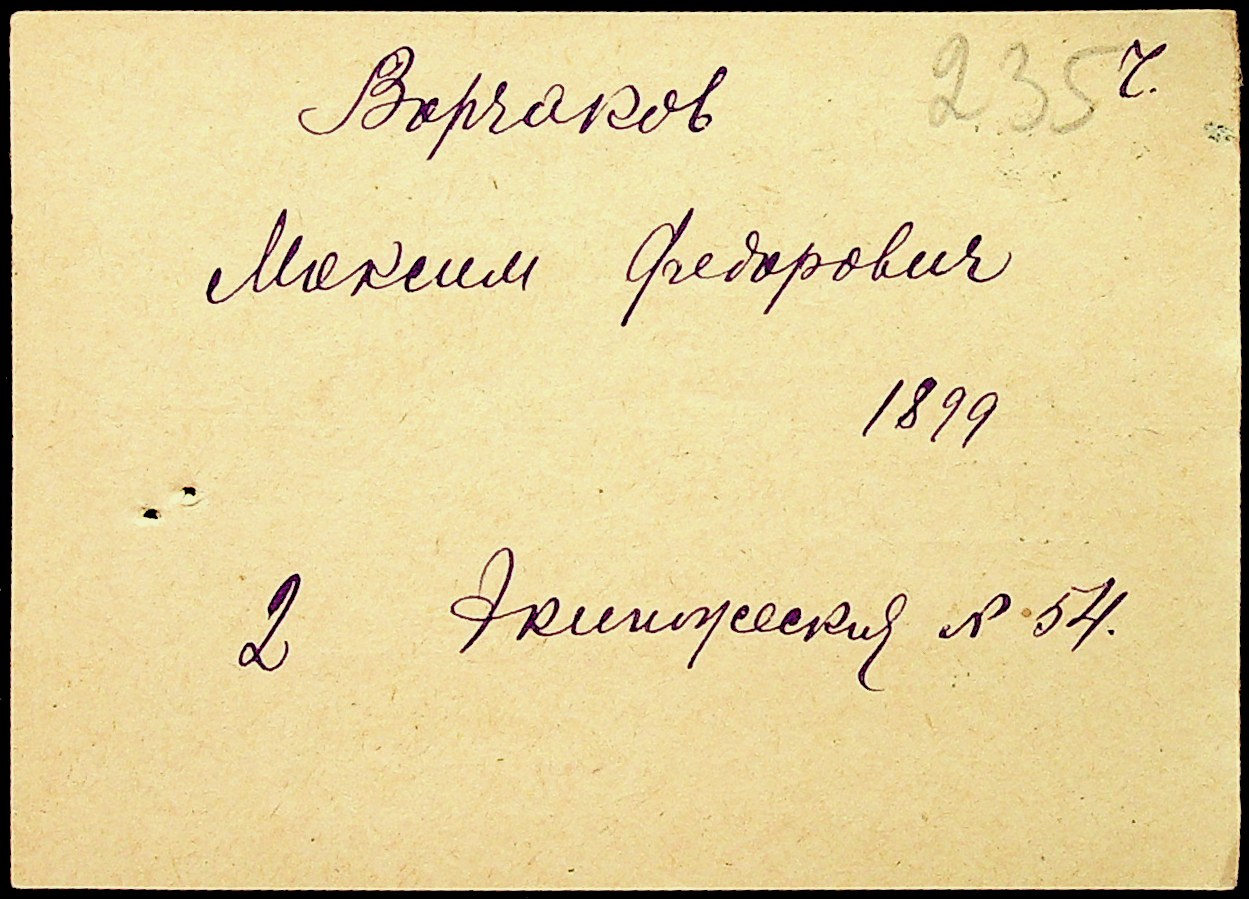 Ворчаков 235 ч.
Максим Федорович
1899
2 Экипажеская № 54.